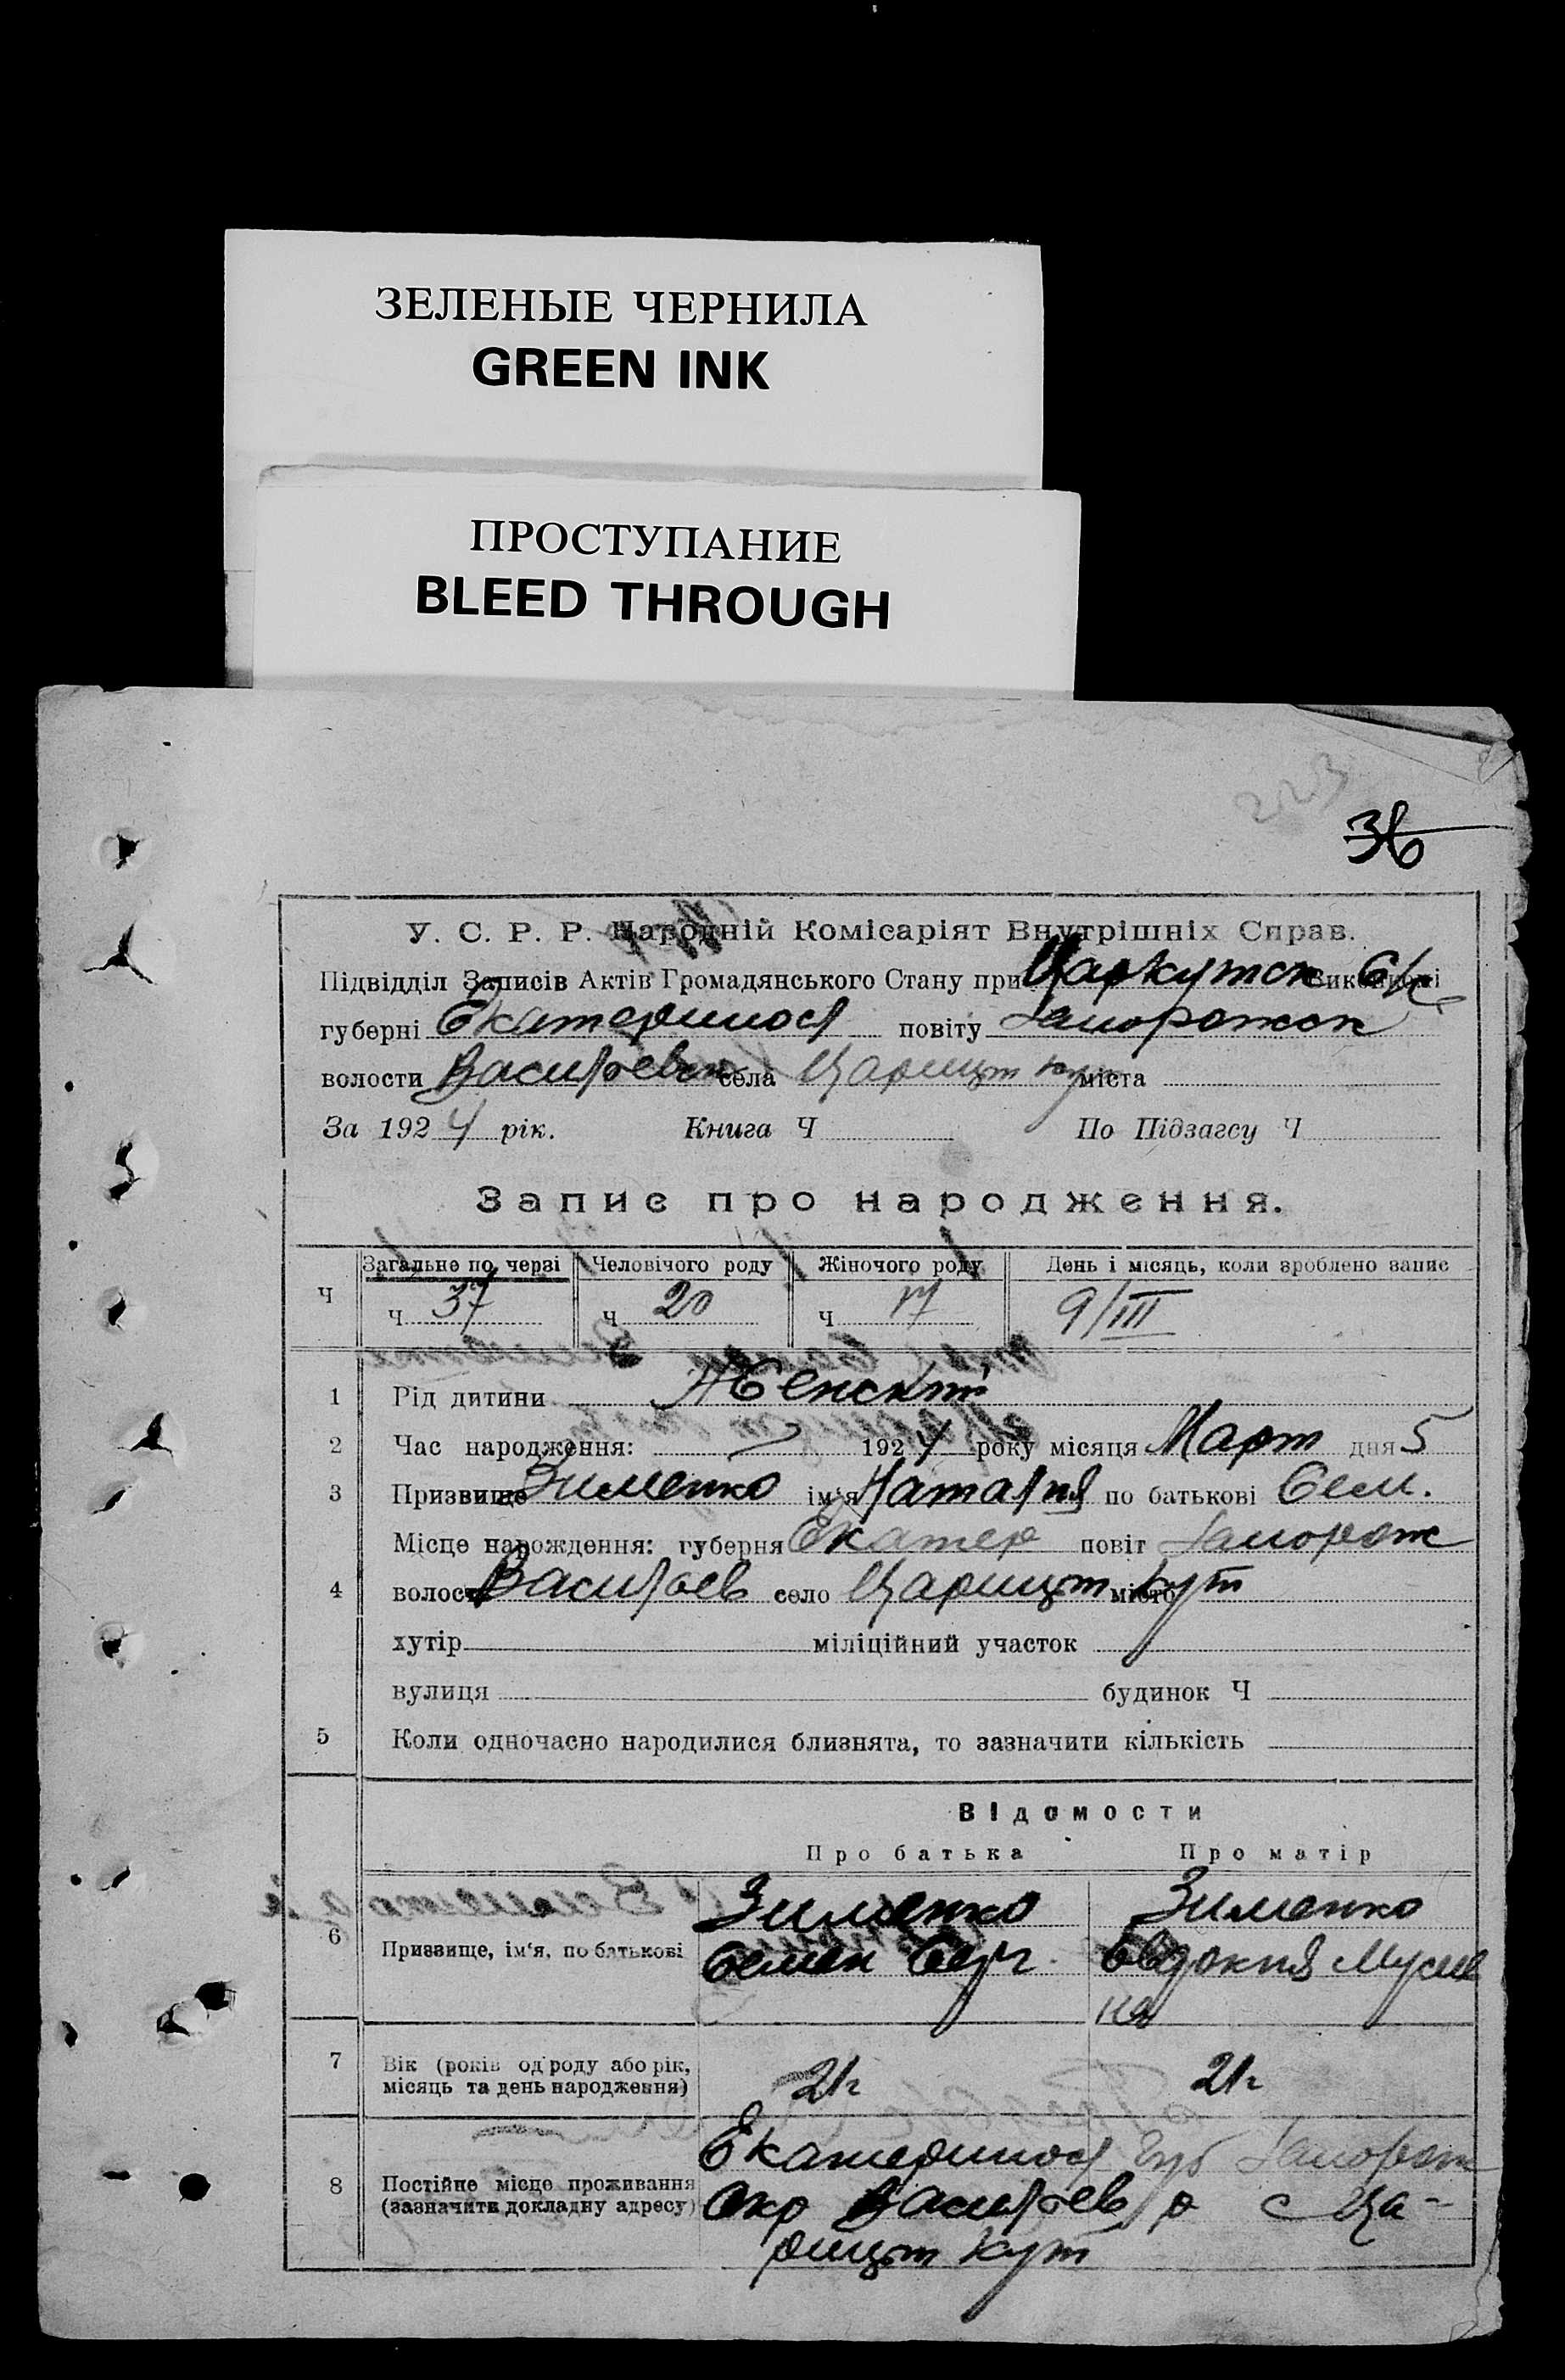 ЗЕЛЕНЫЕ ЧЕРНИЛА
GREEN INK
ПРОСТУПАНИЕ
BLEED THROUGH
223
36
У. С. Р. Р. Народній Комісаріят Внутрішніх Справ.
Підвідділ Записів Актів Громадянського Стану при Царкутск С/С
губерні Екатериносл повіту Запорожск
волости Васильевск села Царицын Кут міста
За 1924 рік. Книга Ч По Підзагсу Ч
Запис про народження.
Загальне по черзі Человічого роду Жіночого роду День і місяць, коли зроблено запис
Ч ч 37 ч 20 ч 17 9/III
1 Рід дитини Женский
2 Час народження: 1924 року місяця Март дня 5
3 Призвище Зименко ім'я Наталия по батькові Сем.
Місце народження: губерня Екатер повіт Запорож
4 волость Васильев село Царицын Кут місто
хутір міліційний участок
вулиця будинок Ч
5 Коли одночасно народилися близнята, то зазначити кількість
Відомости
Про батька Про матір
Зименко Зименко
6 Призвище, ім'я, по батькові Семен Серг. Евдокия Мусиев
на
7 Вік (років од роду або рік, місяць та день народження) 21г 21г
Екатериносл Губ Запорож
8 Постійне місце проживання (зазначити докладну адресу) Окр Васильев р с Ца-
рицын Кут